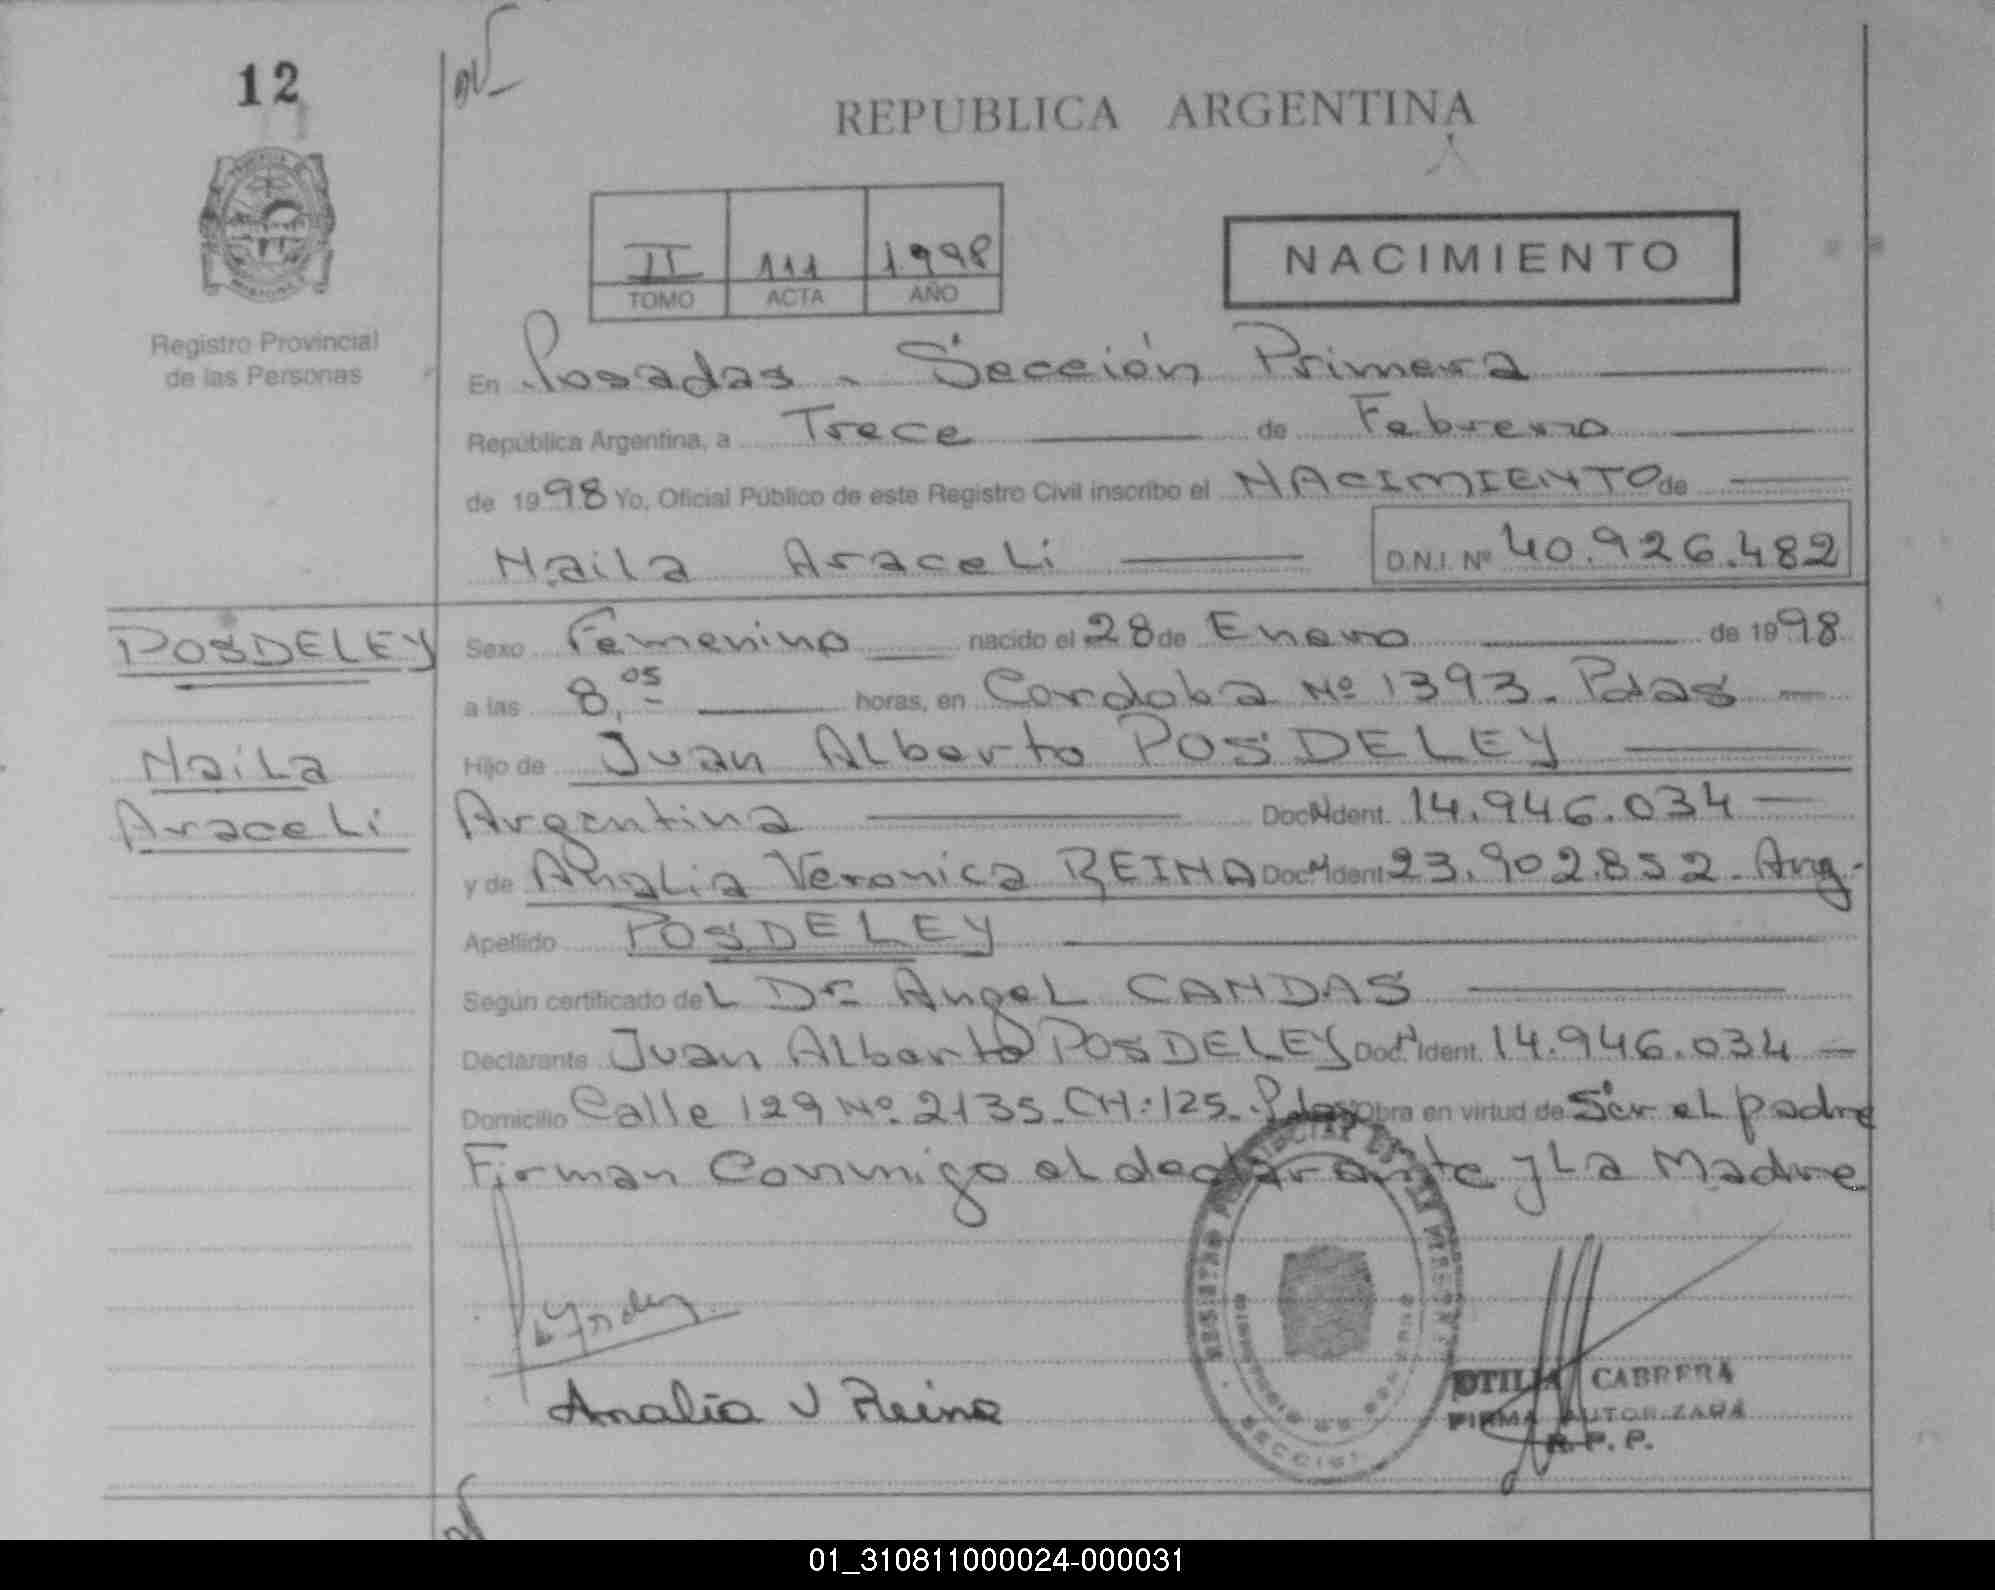 12
REPUBLICA ARGENTINA
II 111 1998
TOMO ACTA AÑO
NACIMIENTO
Registro Provincial
de las Personas
En Posadas - Sección Primera
República Argentina, a Trece de Febrero
de 1998 Yo, Oficial Público de este Registro Civil inscribo el NACIMIENTO de
Naila Araceli D.N.I. Nº 40.926.482
POSDELEY
Naila
Araceli
Sexo Femenino nacido el 28 de Enero de 1998
a las 8,05 horas, en Cordoba Nº 1393. Pdas
Hijo de Juan Alberto POSDELEY
Argentina Doc. Ident. 14.946.034
y de Analia Veronica REINA Doc. Ident. 23.902.852. Arg.
Apellido POSDELEY
Según certificado del Dr. Angel CANDAS
Declarante Juan Alberto POSDELEY Doc. Ident. 14.946.034
Domicilio Calle 129 Nº 2135. CH: 125. Pdas Obra en virtud de Ser el padre
Firman Conmigo el declarante y La Madre
Analia V Reina
OTILIA CABRERA
FIRMA AUTORIZADA
R. P. P.
01_310811000024-000031